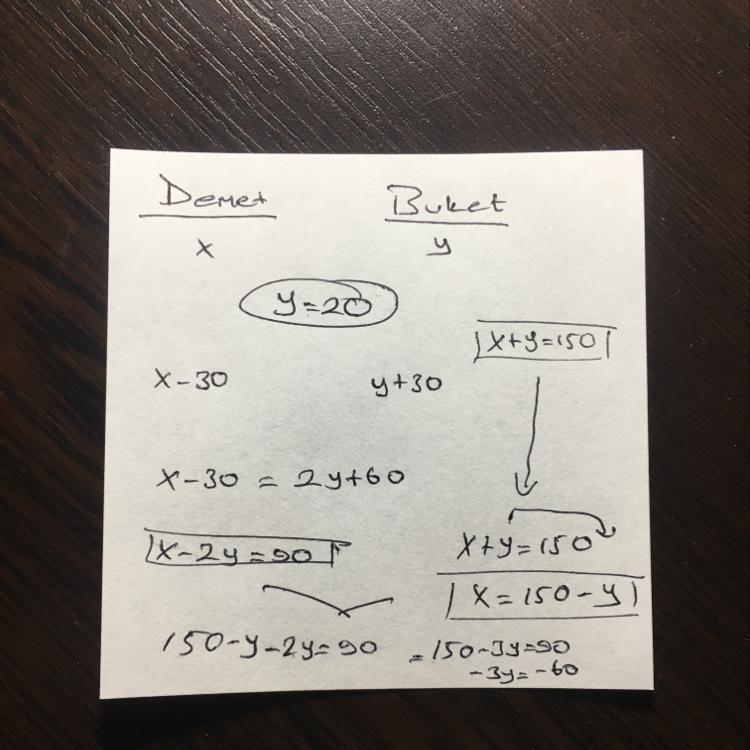 Demet Buket
x y
y=20
x+y=150
x-30 y+30
x-30 = 2y+60
x-2y=90
x+y=150
x=150-y
150-y-2y=90 = 150-3y=90
-3y=-60